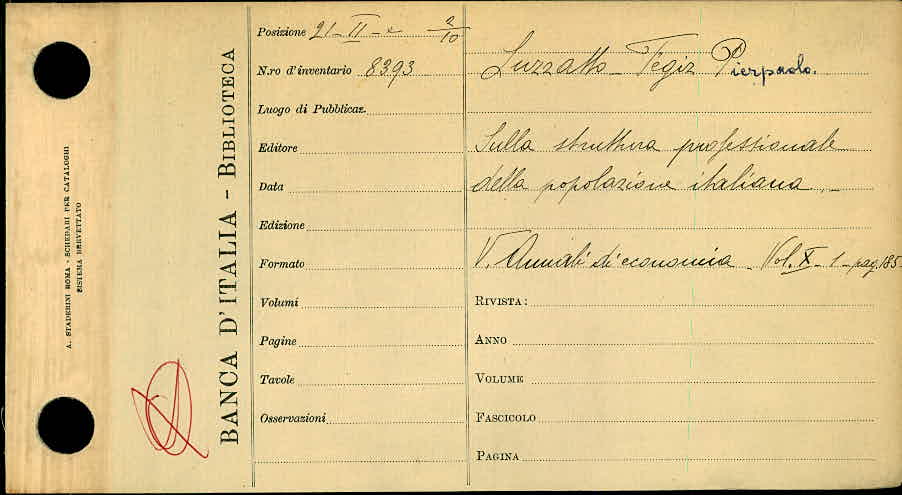 A. STADERINI ROMA - SCHEDARI PER CATALOGHI
SISTEMA BREVETTATO
BANCA D'ITALIA - BIBLIOTECA
Posizione 21-II-c 2/10
N.ro d'inventario 8393
Luogo di Pubblicaz.
Editore
Data
Edizione
Formato
Volumi
Pagine
Tavole
Osservazioni
Luzzatto-Fegiz Pierpaolo.
Sulla struttura professionale
della popolazione italiana.-
V. Annali di economia - Vol. X - 1 - pag. 185
RIVISTA:
ANNO
VOLUME
FASCICOLO
PAGINA